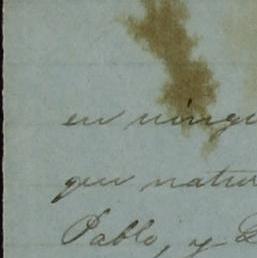 en ningu
que natur
Pablo, y